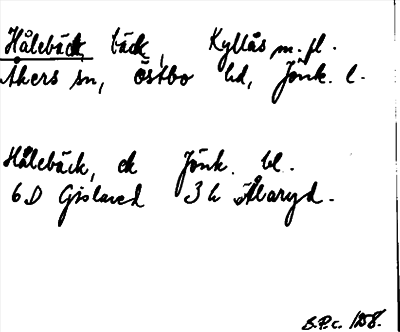 Hålebäck, bäck, Kyllås m. fl.
Åkers sn, Östbo hd, Jönk. l.
Hålebäck, ek Jönk. bl.
6D Gislaved 3h Åbaryd.
B.P.c. 1258.